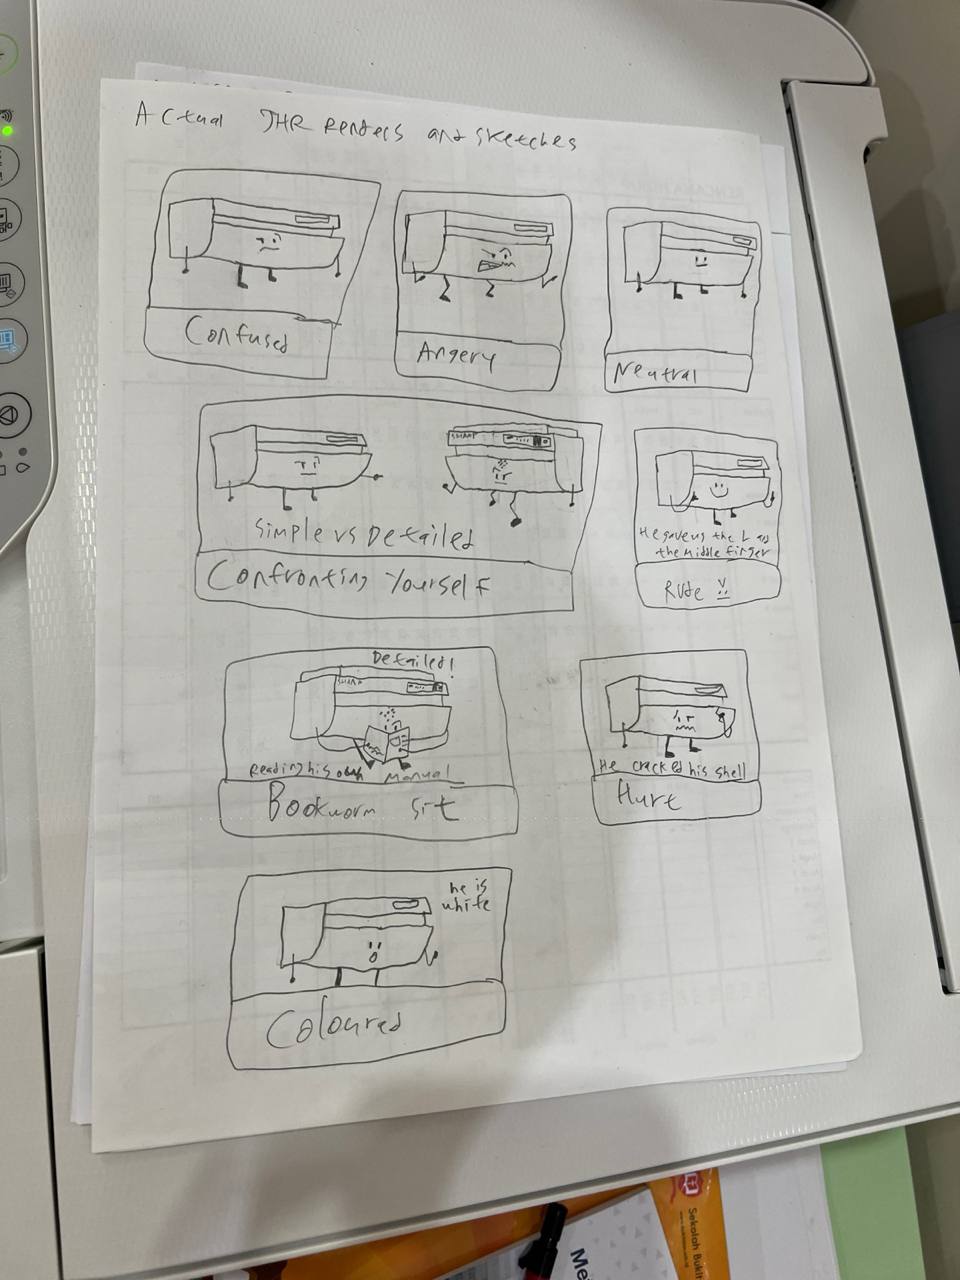 Actual JHR Renders and sketches
Confused
Angery
Neutral
SHARP
Simple vs Detailed
Confronting Yourself
He gave us the L and
the middle finger
Rude
Detailed!
SHARP
Reading his own manual
Bookworm sit
He cracked his shell
Hurt
he is
white
Coloured
Sekolah Bukit
Me